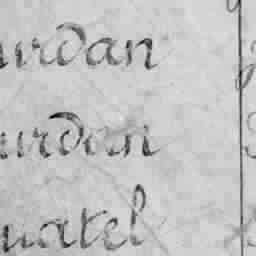 urdan
urdan
uatel